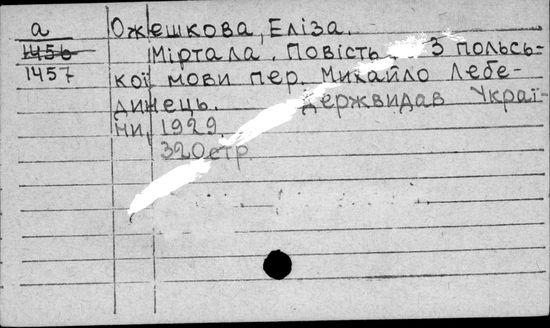 а
1456
1457
Ожешкова, Еліза.
Міртала. Повість. З польсь-
кої мови пер. Михайло Лебе-
динець. Держвидав Украї-
ни, 1929.
320 стр.